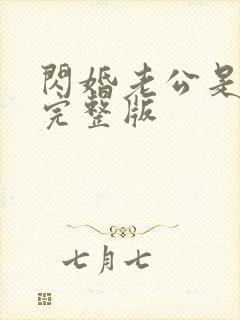 閃婚老公是
完整版
七月七